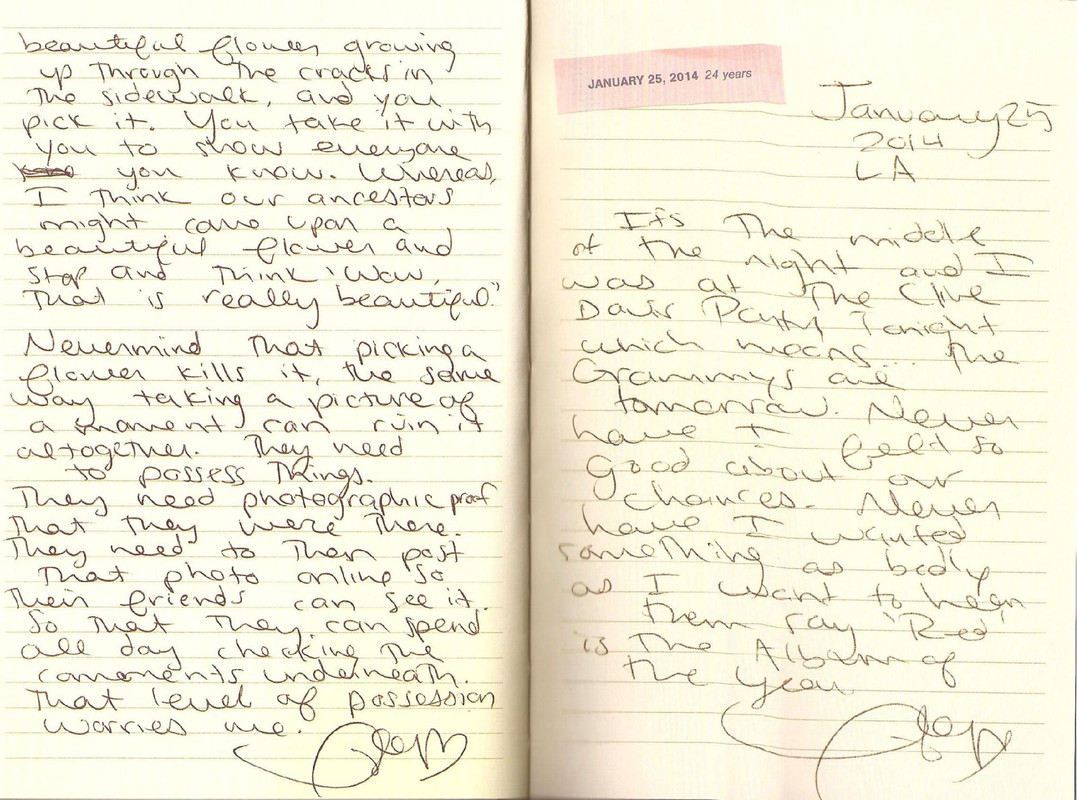 beautiful flower growing
up through the cracks in
the sidewalk, and you
pick it. You take it with
you to show everyone
you know. Whereas,
I think our ancestors
might come upon a
beautiful flower and
stop and think 'Wow,
that is really beautiful.'
Nevermind that picking a
flower kills it, the same
way taking a picture of
a moment can ruin it
altogether. They need
to possess things.
They need photographic proof
that they were there.
They need to then post
that photo online so
their friends can see it.
So that they can spend
all day checking the
comments underneath.
That level of possession
worries me.
JANUARY 25, 2014 24 years
January 25
2014
LA
It's the middle
of the night and I
was at the Clive
Davis Party tonight
which means... the
Grammys are
tomorrow. Never
have I felt so
good about our
chances. Never
have I wanted
something as badly
as I want to hear
them say "Red"
is the Album of
the Year.